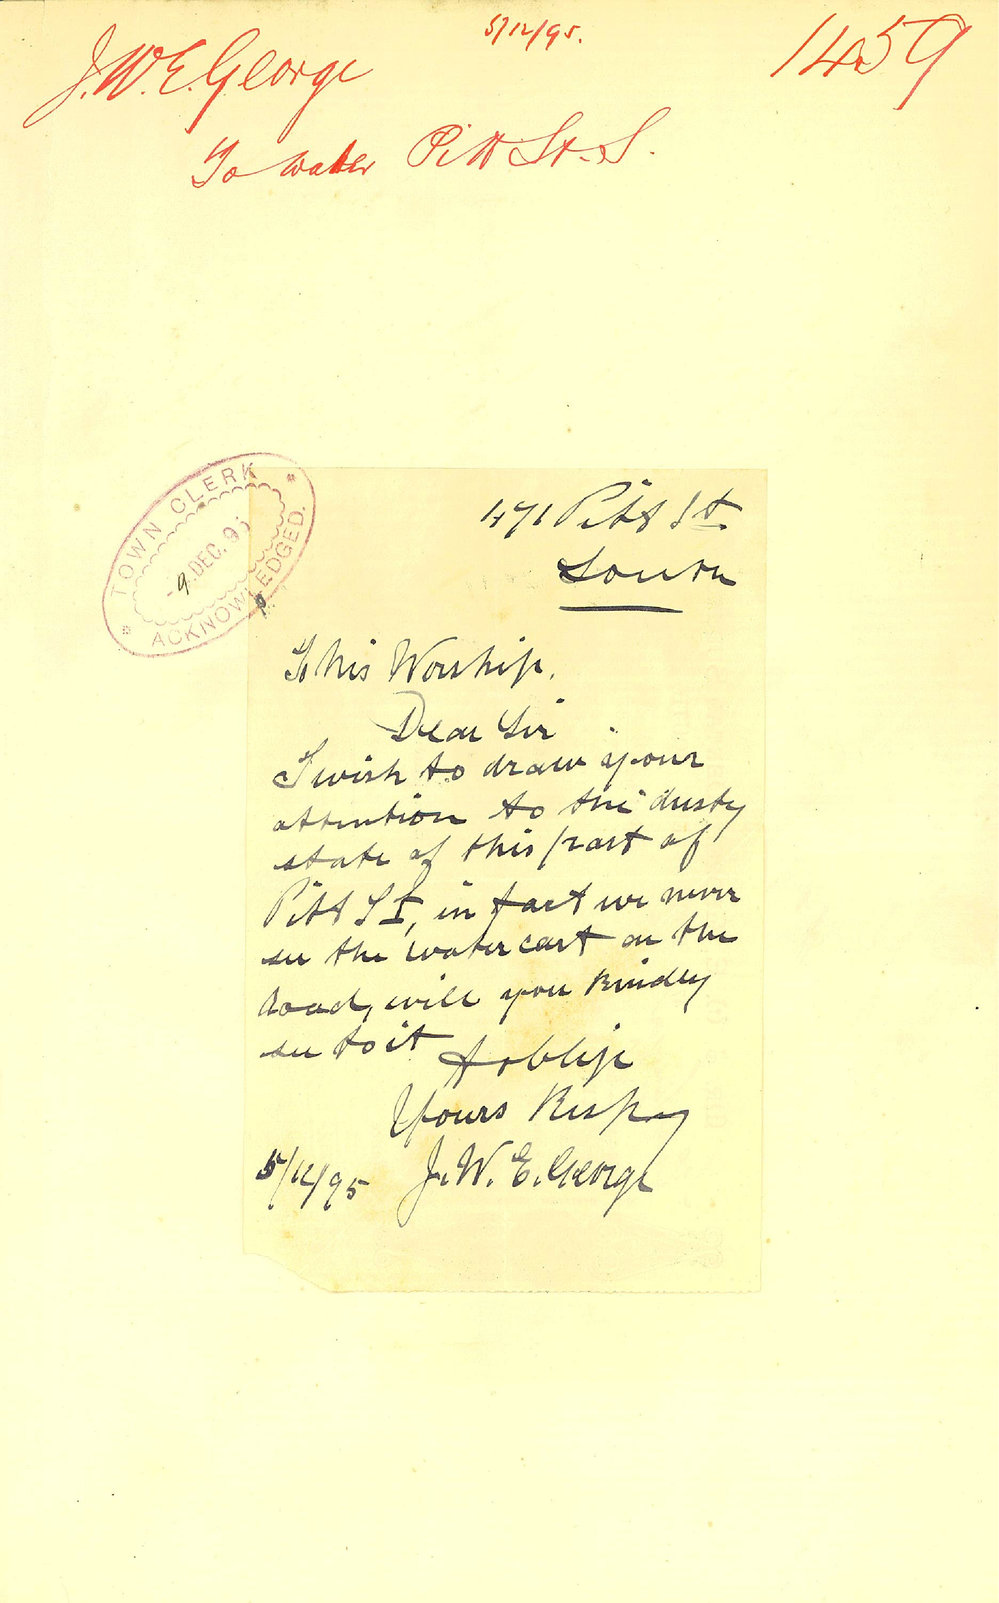 5/12/95.
J.W.E. George
1459
To water Pitt St. S.
TOWN CLERK
9 DEC. 95
ACKNOWLEDGED.
471 Pitt St
South
To his Worship.
Dear Sir
I wish to draw your
attention to the dusty
state of this part of
Pitt St, in fact we never
see the water cart on the
road, will you kindly
see to it
& oblige
Yours Respy
5/12/95 J. W. E. George